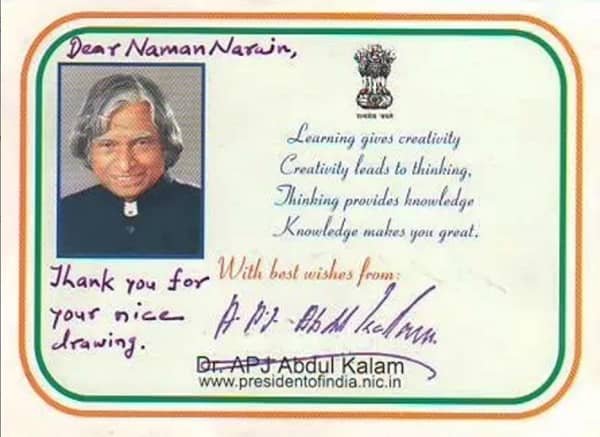 Dear Naman Narain,
सत्यमेव जयते
Learning gives creativity
Creativity leads to thinking,
Thinking provides knowledge
Knowledge makes you great.
Thank you for
your nice
drawing.
With best wishes from:
A.P.J. Abdul Kalam
Dr. APJ Abdul Kalam
www.presidentofindia.nic.in